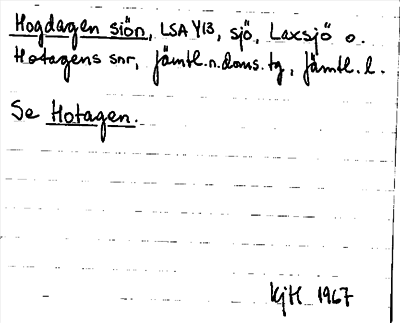 Hogdagen siön, LSA Y13, sjö, Laxsjö o.
Hotagens snr, Jämtl.n.doms.tg, Jämtl.l.
Se Hotagen.
KjH 1967